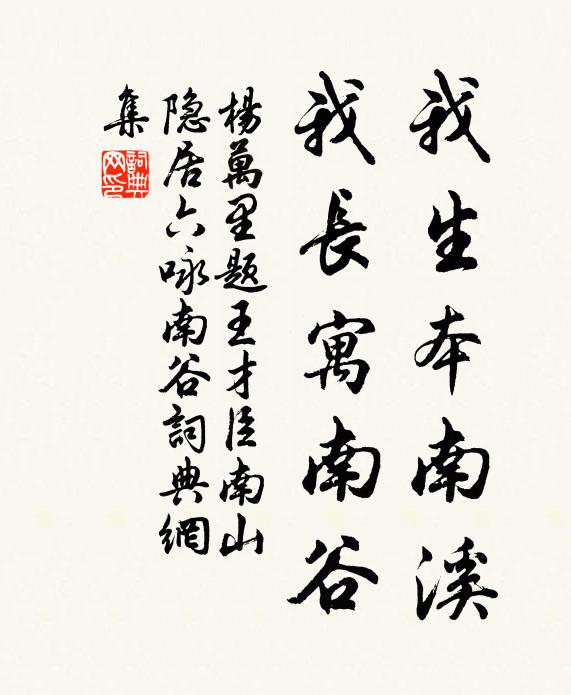 我生本南溪
我長寓南谷
楊萬里题王才臣南山
隐居六咏南谷詞典網
集
詞典网印